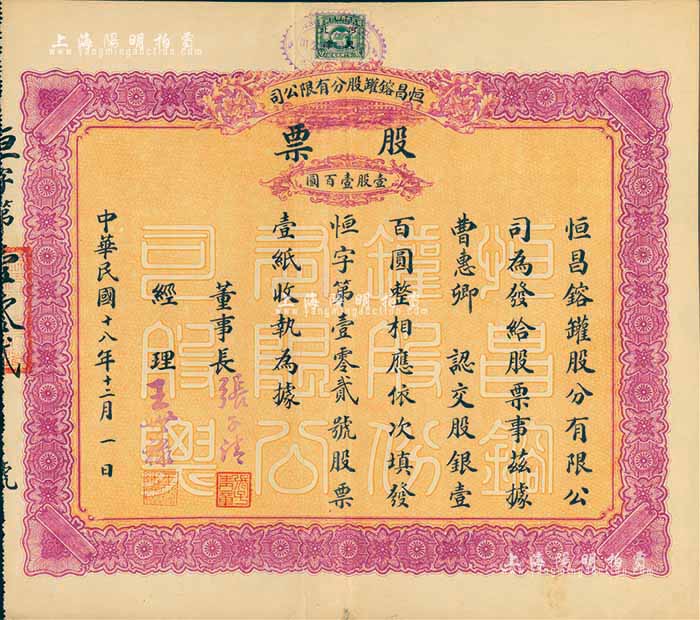 上海陽明拍賣
www.yangmingauction.com
恒昌鎔罐股分有限公司
股票
壹股壹百圓
恒昌鎔罐股分有限公
司為發給股票事茲據
曹惠卿　認交股銀壹
百圓整相應依次填發
恒字第壹零貳號股票
壹紙收執為據
董事長
張子清
經理
中華民國十八年十二月一日
恒字第壹零貳號
上海陽明拍賣
上海陽明拍賣
www.yangmingauction.com